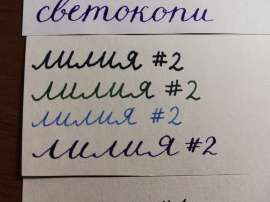 светокопи
лилия #2
лилия #2
лилия #2
лилия #2